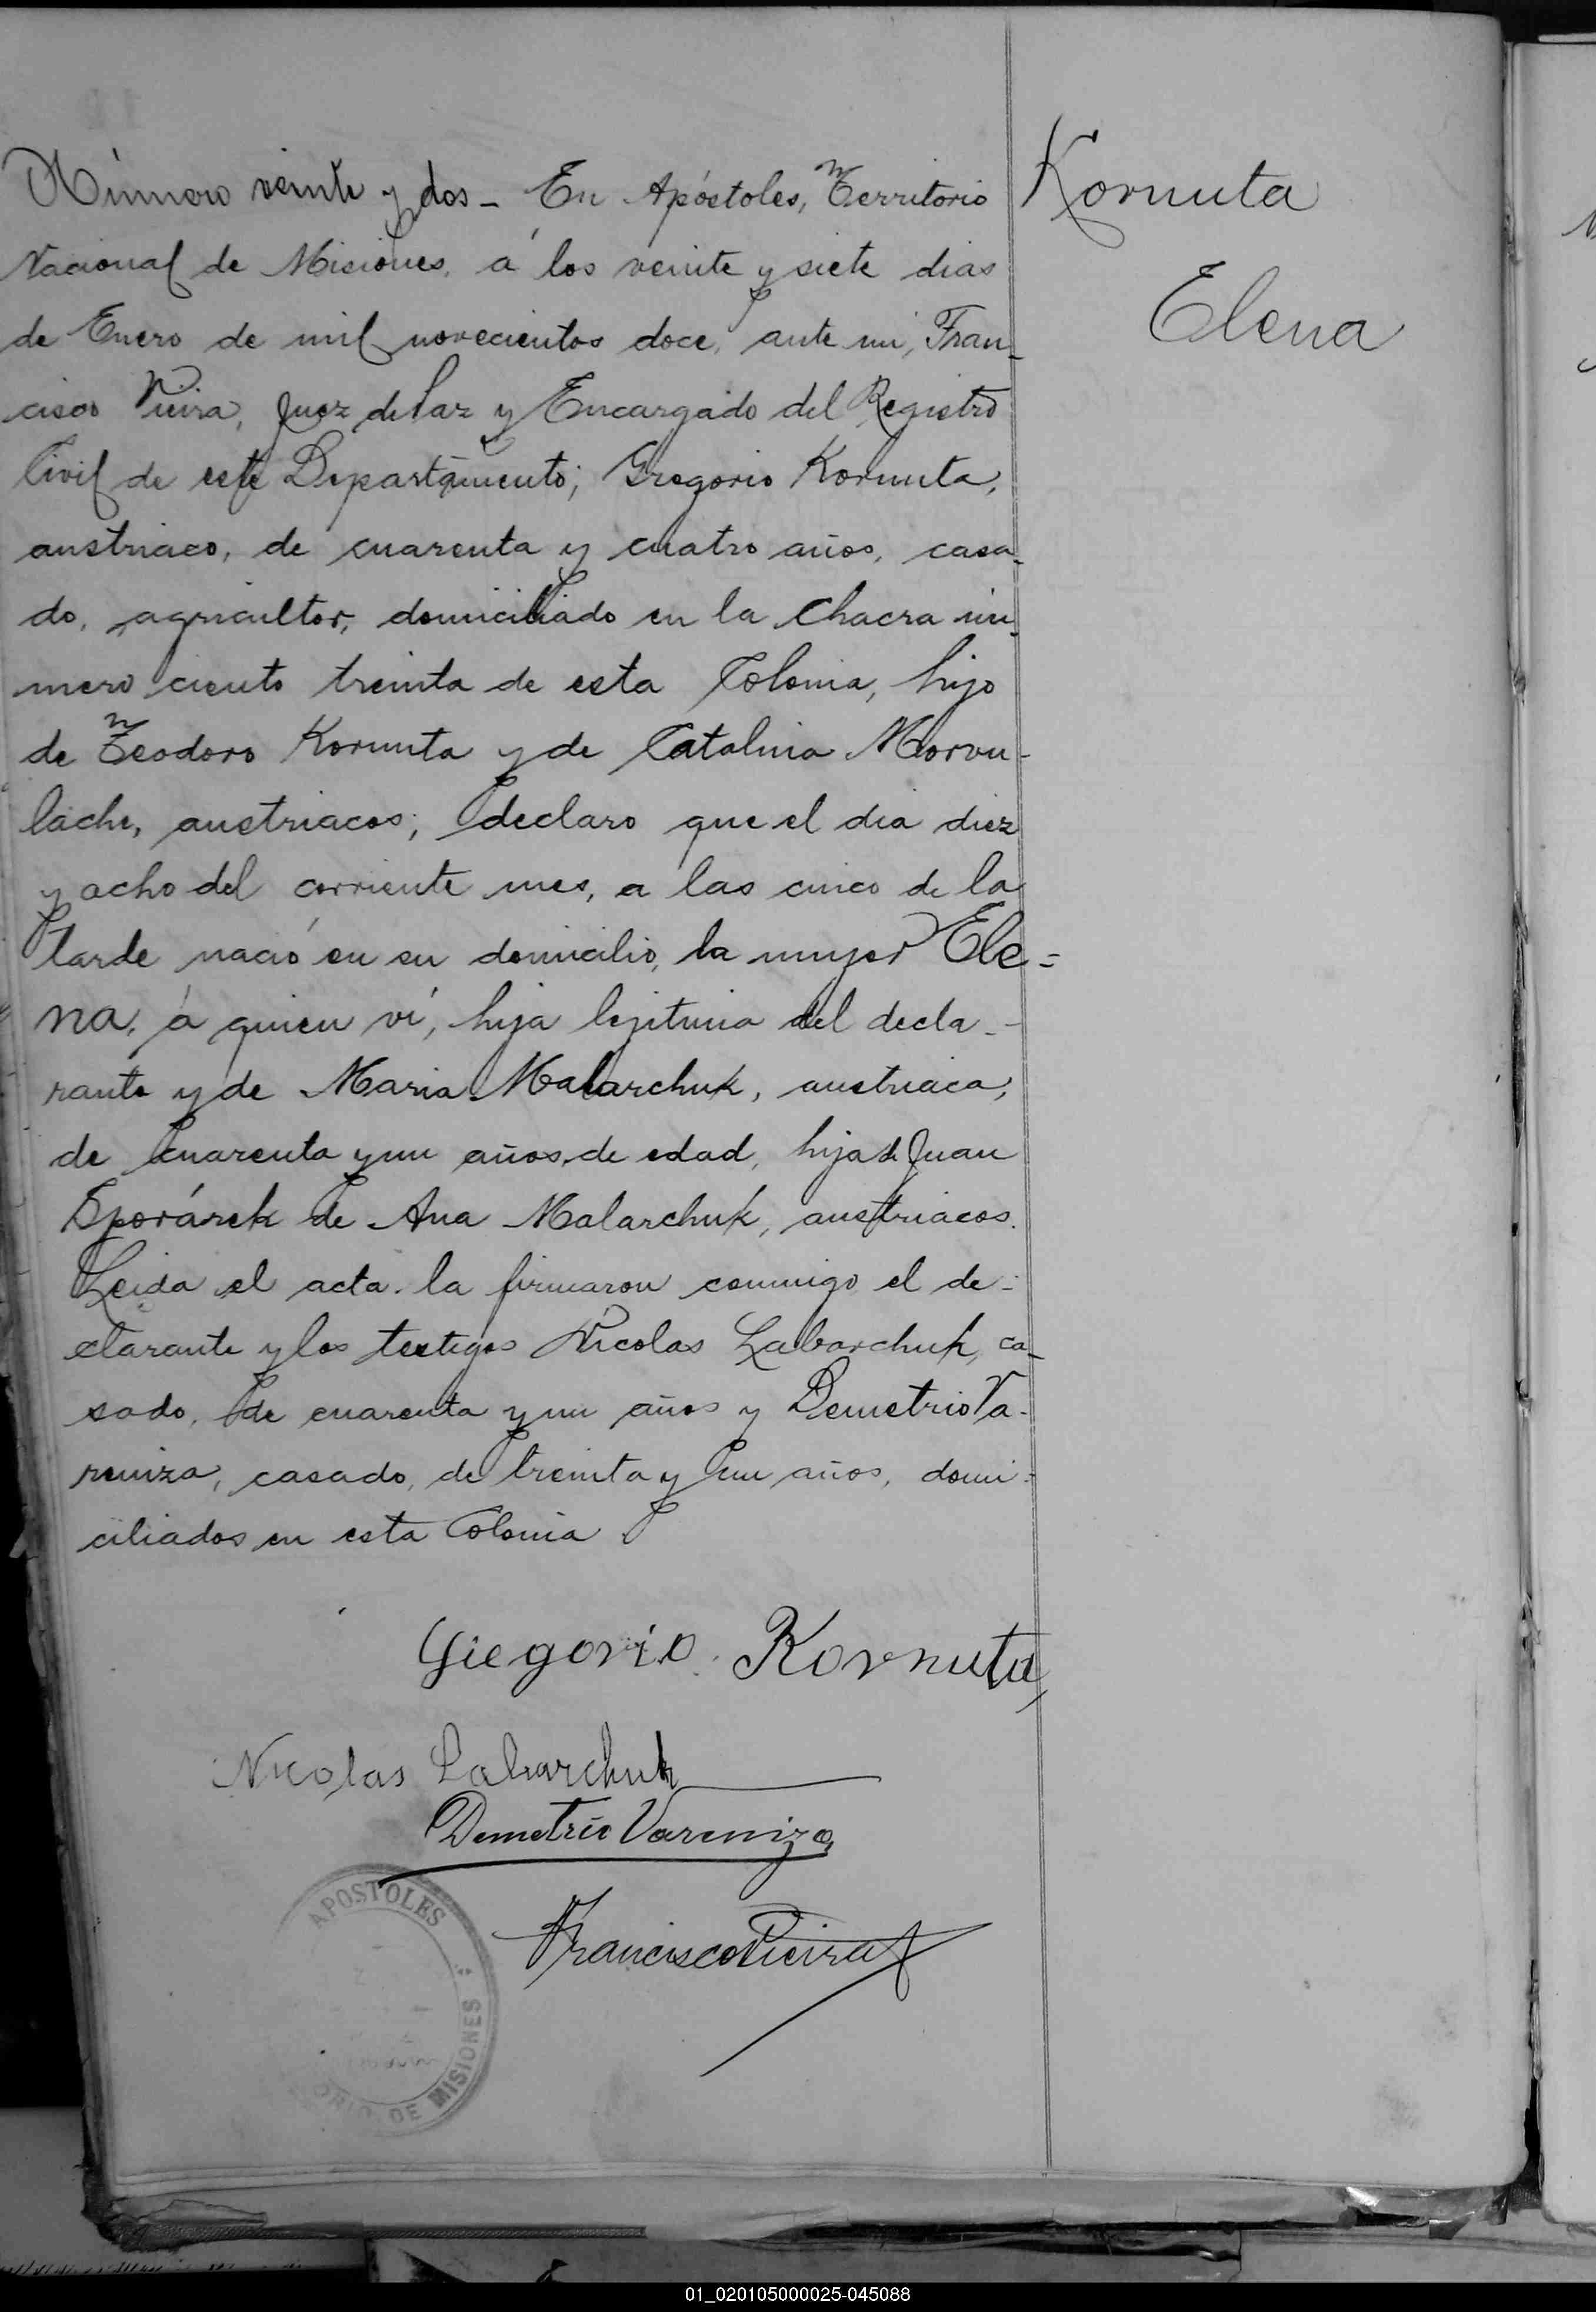 Número veinte y dos - En Apóstoles, Territorio
Nacional de Misiones, á los veinte y siete dias
de Enero de mil novecientos doce, ante mi, Fran-
cisco Vieira, Juez de Paz y Encargado del Registro
Civil de este Departamento; Gregorio Kornuta,
austriaco, de cuarenta y cuatro años, casa-
do, agricultor, domiciliado en la chacra nú-
mero ciento treinta de esta Colonia, hijo
de Teodoro Kornuta y de Catalina Morvu-
lache, austriacos; declaro que el dia diez
y ocho del corriente mes, a las cinco de la
tarde nació en su domicilio, la mujer Ele=
na, á quien ví, hija lejitima del decla-
rante y de Maria Malarchuk, austriaca,
de cuarenta y un años de edad, hija de Juan
de Ana Malarchuk, austriacos.
Leida el acta la firmaron conmigo el de-
clarante y los testigos Nicolas Labarchuk, ca-
sado, de cuarenta y un años y Demetrio Va-
reniza, casado, de treinta y un años, domi-
ciliados en esta Colonia
Kornuta
Elena
Gregorio Kornuta
Nicolas Labarchuk
Demetrio Vareniza
Francisco Vieira
APOSTOLES
ORIO DE MISIONES
01_020105000025-045088